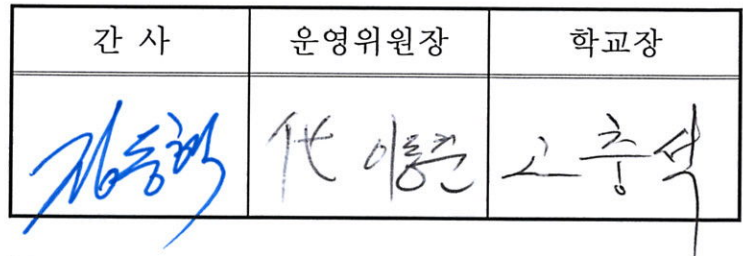 간 사 운영위원장 학교장
김동혁 代 이동준 고충석